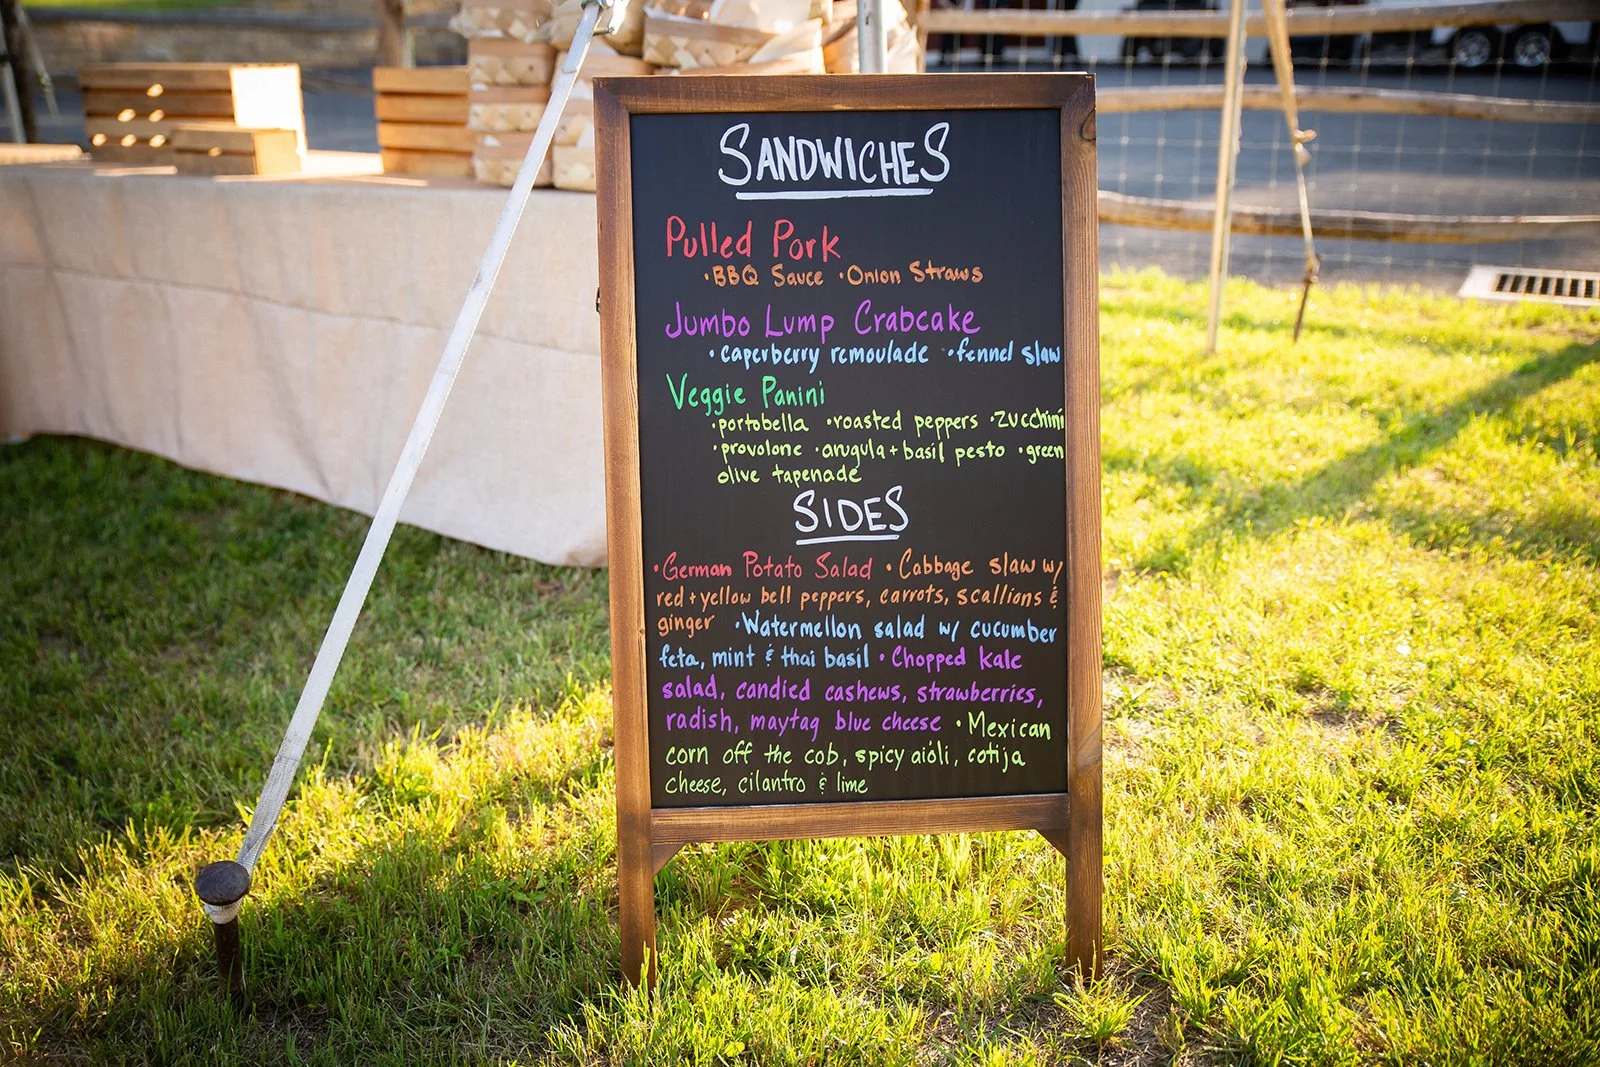 SANDWICHES
Pulled Pork
•BBQ Sauce •Onion Straws
Jumbo Lump Crabcake
•caperberry remoulade •fennel slaw
Veggie Panini
•portobella •roasted peppers •zucchini
•provolone •arugula + basil pesto •green
olive tapenade
SIDES
•German Potato Salad •Cabbage slaw w/
red + yellow bell peppers, carrots, scallions &
ginger •Watermellon salad w/ cucumber
feta, mint & thai basil •Chopped kale
salad, candied cashews, strawberries,
radish, maytag blue cheese •Mexican
corn off the cob, spicy aióli, cotija
cheese, cilantro & lime